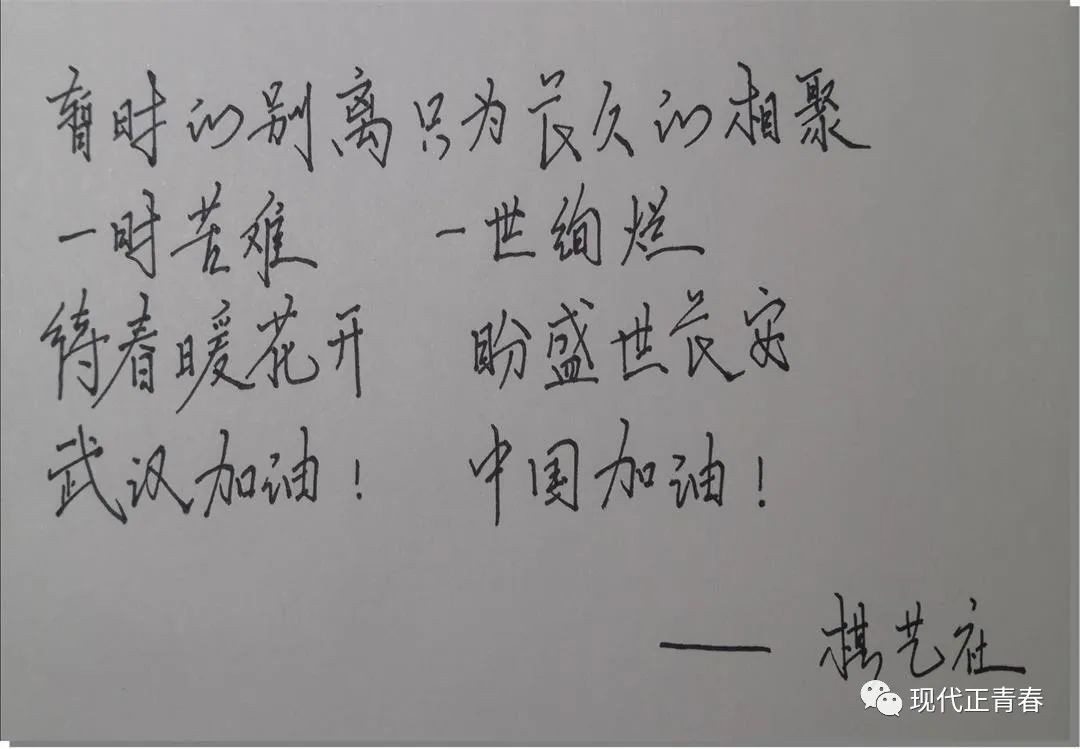 暂时的别离只为长久的相聚
一时苦难 一世绚烂
待春暖花开 盼盛世长安
武汉加油! 中国加油!
—— 棋艺社
现代正青春